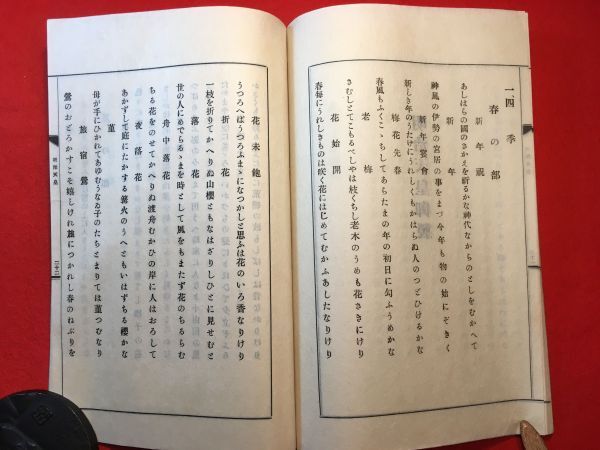 一、四季
春の部
新年祝
あしはらの國のさかえを祈るかな神代ながらのとしをむかへて
新年
神風の伊勢の宮居の事をまづ今年も物の始にぞきく
新年宴會
新しき年のうたげにうれしくもかはらぬ人のつどひけるかな
梅花先春
春風もふくこゝちしてあらたまの年の初日に匂ふうめかな
老梅
さむしとてこもるべしやは枝くちし老木のうめも花さきにけり
花始開
春每にうれしきものは咲く花にはじめてむかふあしたなりけり
花未飽
うつろへばうつろふまゝになつかしと思ふは花のいろ香なりけり
折花
一枝を折りてかへりぬ山櫻ともなはざりしひとに見せむと
落花
世の人にめでらるゝまを時として風をもまたず花のちるらむ
舟中落花
ちる花をのせてかへりぬ渡舟むかひの岸に人はおろして
夜落花
あかずして庭にたかする篝火のうへともいはずちる櫻かな
菫
母が手にひかれてあゆむうなゐ子のたちとまりては菫つむなり
旅宿鶯
鶯のおどろかすこそ嬉しけれ旅につかれし春のねぶりを
明治天皇